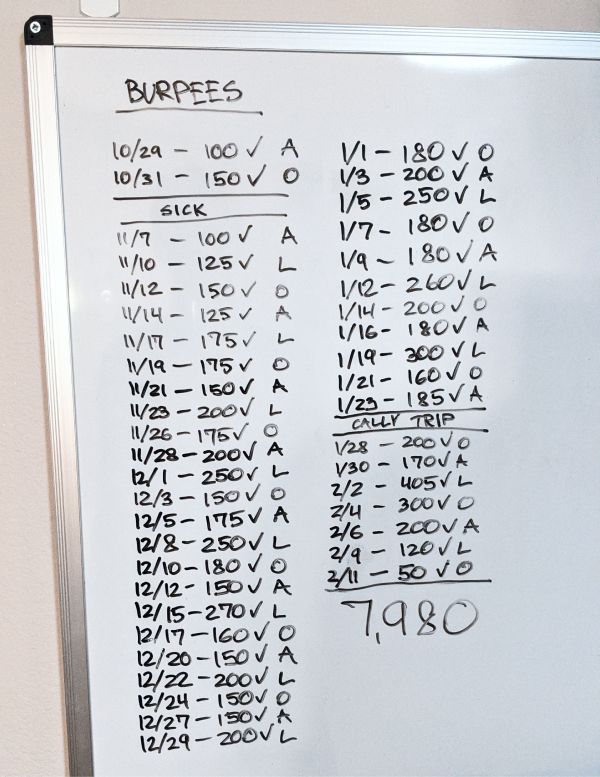 BURPEES
10/29 - 100 ✓ A
10/31 - 150 ✓ O
SICK
11/7 - 100 ✓ A
11/10 - 125 ✓ L
11/12 - 150 ✓ O
11/14 - 125 ✓ A
11/17 - 175 ✓ L
11/19 - 175 ✓ O
11/21 - 150 ✓ A
11/23 - 200 ✓ L
11/26 - 175 ✓ O
11/28 - 200 ✓ A
12/1 - 250 ✓ L
12/3 - 150 ✓ O
12/5 - 175 ✓ A
12/8 - 250 ✓ L
12/10 - 180 ✓ O
12/12 - 150 ✓ A
12/15 - 270 ✓ L
12/17 - 160 ✓ O
12/20 - 150 ✓ A
12/22 - 200 ✓ L
12/24 - 150 ✓ O
12/27 - 150 ✓ A
12/29 - 200 ✓ L
1/1 - 180 ✓ O
1/3 - 200 ✓ A
1/5 - 250 ✓ L
1/7 - 180 ✓ O
1/9 - 180 ✓ A
1/12 - 260 ✓ L
1/14 - 200 ✓ O
1/16 - 180 ✓ A
1/19 - 300 ✓ L
1/21 - 160 ✓ O
1/23 - 185 ✓ A
CALLY TRIP
1/28 - 200 ✓ O
1/30 - 170 ✓ A
2/2 - 405 ✓ L
2/4 - 300 ✓ O
2/6 - 200 ✓ A
2/9 - 120 ✓ L
2/11 - 50 ✓ O
7,980